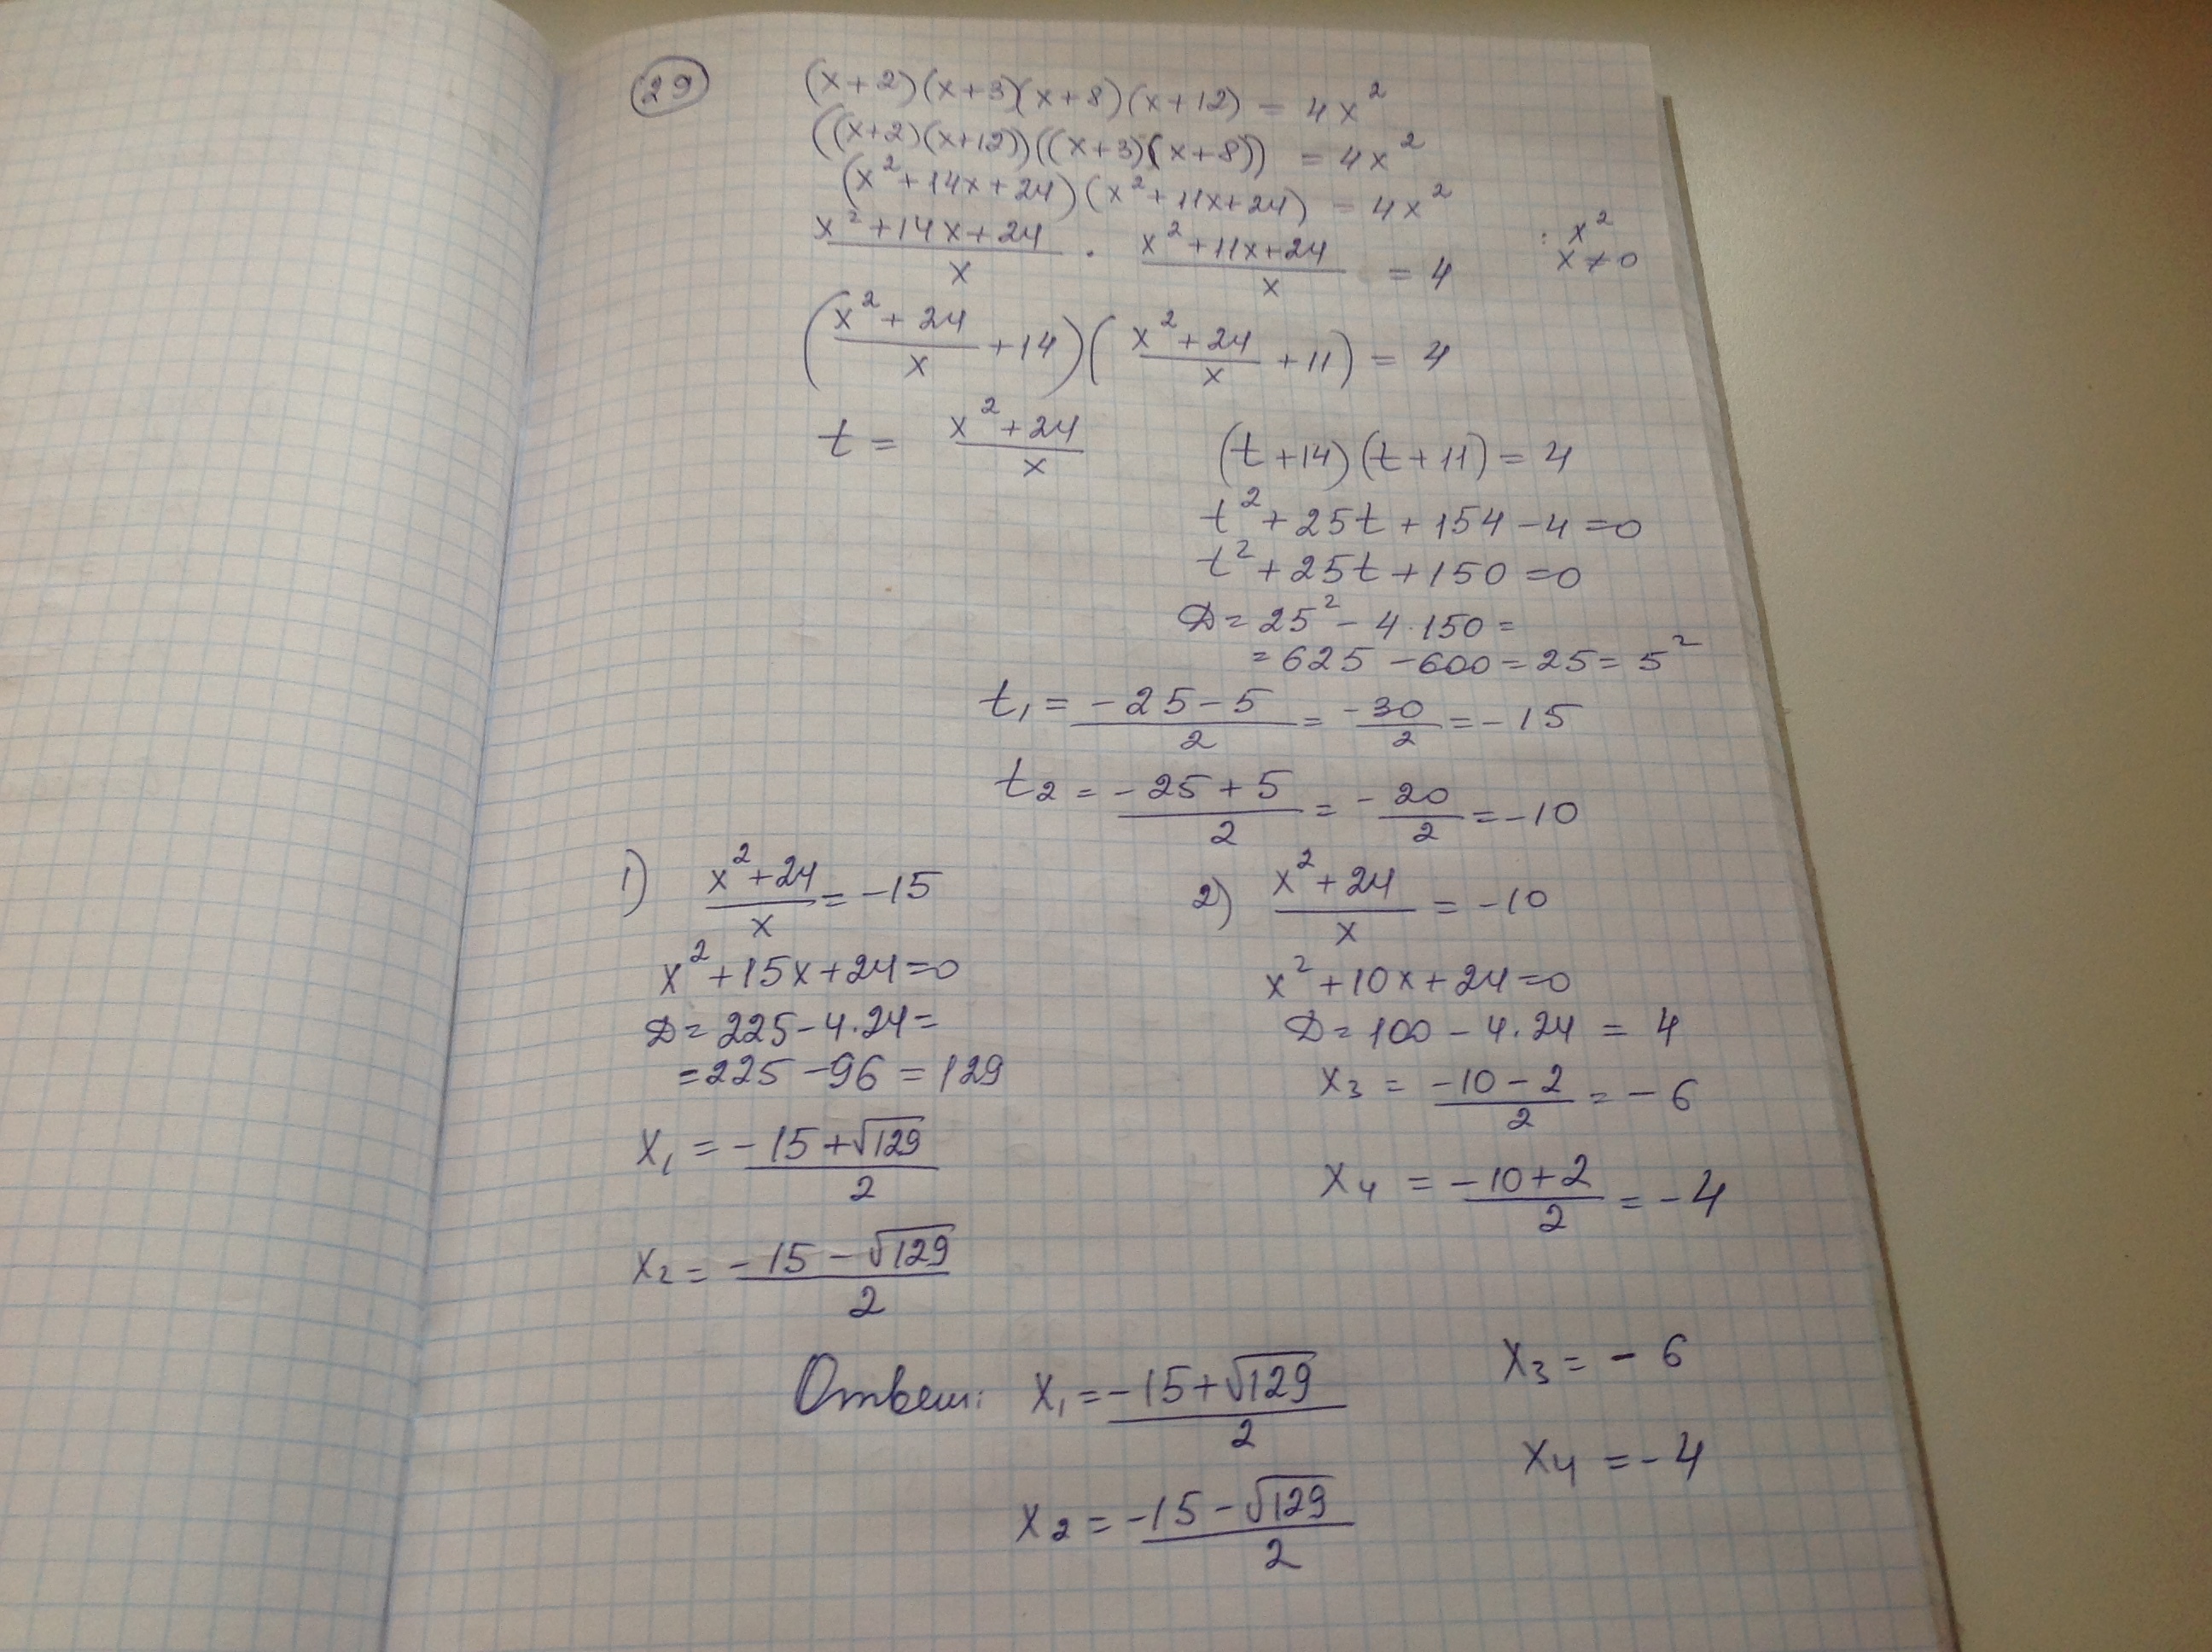 29
(x+2)(x+3)(x+8)(x+12) = 4x²
((x+2)(x+12))((x+3)(x+8)) = 4x²
(x²+14x+24)(x²+11x+24) = 4x²
(x²+14x+24)/x · (x²+11x+24)/x = 4 : x² x≠0
((x²+24)/x +14)((x²+24)/x +11) = 4
t = (x²+24)/x (t+14)(t+11) = 4
t²+25t+154-4=0
t²+25t+150=0
D = 25² - 4·150 =
= 625 - 600 = 25 = 5²
t₁ = (-25-5)/2 = -30/2 = -15
t₂ = (-25+5)/2 = -20/2 = -10
1) (x²+24)/x = -15 2) (x²+24)/x = -10
x²+15x+24=0 x²+10x+24=0
D = 225-4·24= D = 100 - 4·24 = 4
=225-96=129 x₃ = (-10-2)/2 = -6
x₁ = (-15+√129)/2 x₄ = (-10+2)/2 = -4
x₂ = (-15-√129)/2
Ответ: x₁ = (-15+√129)/2 x₃ = -6
x₂ = (-15-√129)/2 x₄ = -4